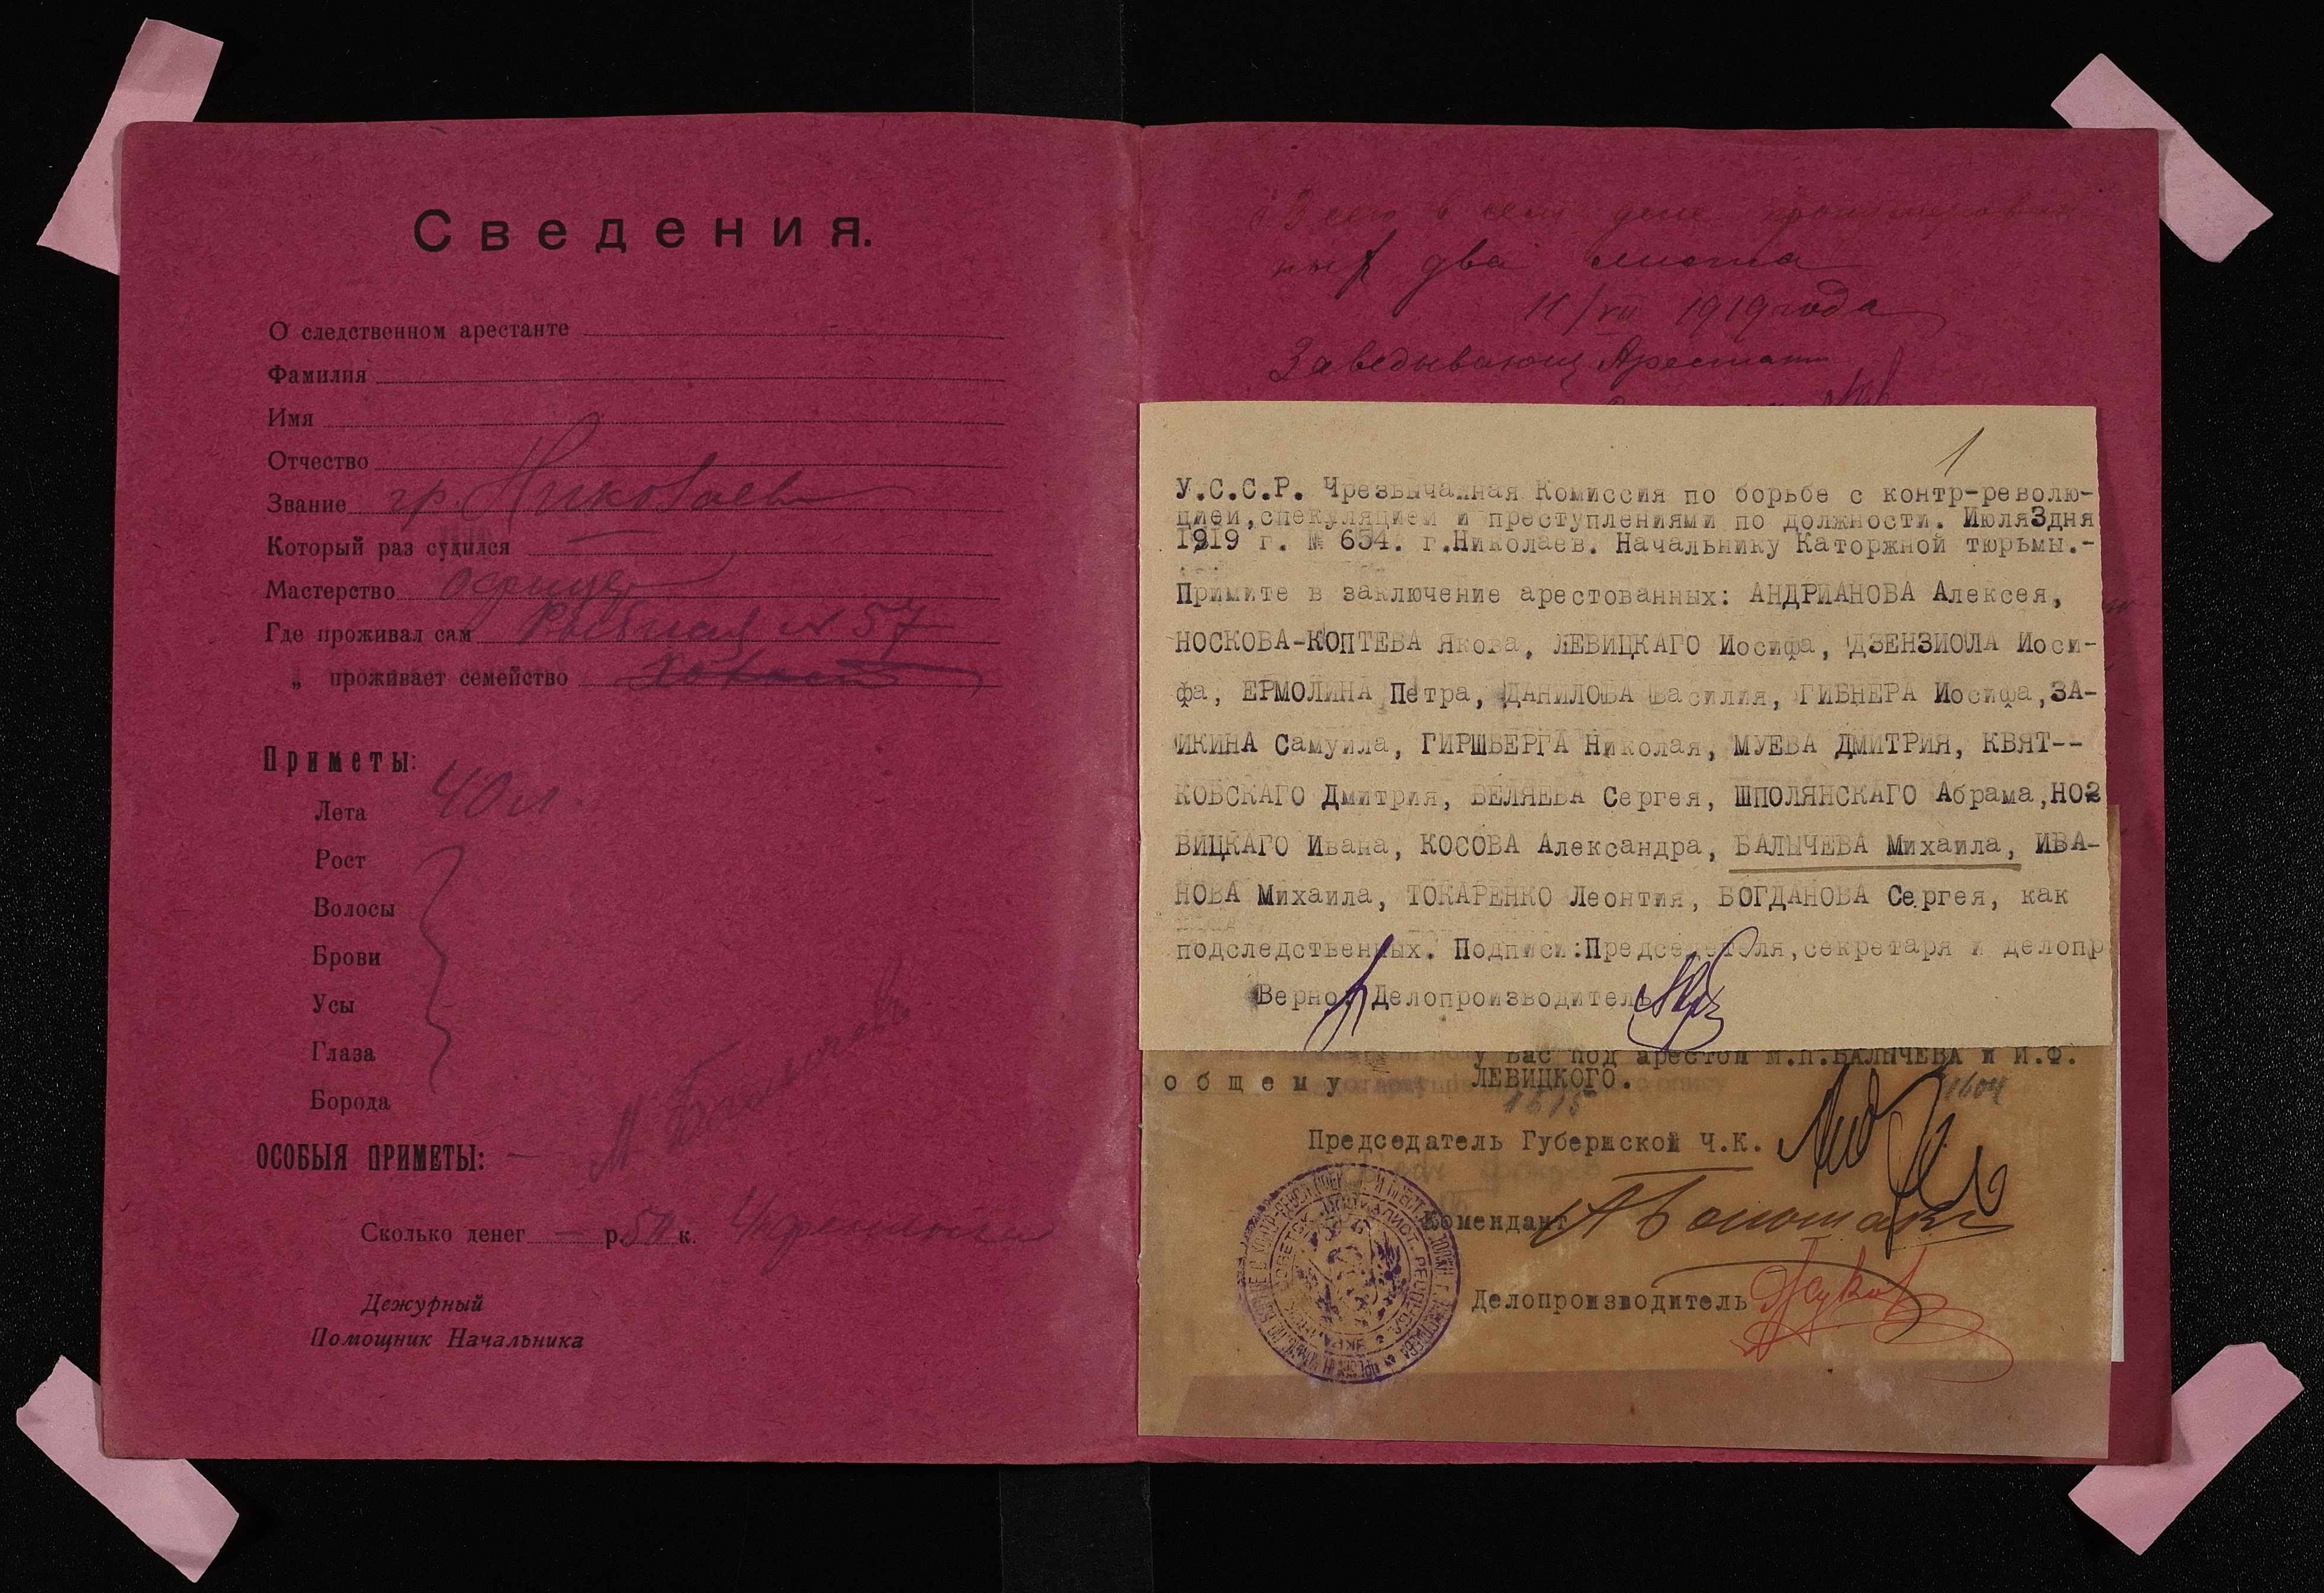 Сведения.
О следственном арестанте
Фамилия
Имя
Отчество
Звание гр. Николаев
Который раз судился
Мастерство офицер
Где проживал сам Рыбная № 57
„ проживает семейство
Приметы:
Лета 40 л.
Рост
Волосы
Брови
Усы
Глаза
Борода
ОСОБЫЯ ПРИМЕТЫ: —
Сколько денег — р. 50 к.
Дежурный
Помощник Начальника
Всего в сем деле пронумерован
ных два листа
11/VII 1919 года
Заведывающ Арестант
1
У.С.С.Р. Чрезвычайная Комиссия по борьбе с контр-револю-
цией,спекуляцией и преступлениями по должности. Июля3дня
1919 г. № 654. г.Николаев. Начальнику Каторжной тюрьмы.-
Примите в заключение арестованных: АНДРИАНОВА Алексея,
НОСКОВА-КОПТЕВА Якова, ЛЕВИЦКАГО Иосифа, ДЗЕНЗИОЛА Иоси-
фа, ЕРМОЛИНА Петра, ДАНИЛОВА Василия, ГИБНЕРА Иосифа,ЗА-
ИКИНА Самуила, ГИРШБЕРГА Николая, МУЕВА ДМИТРИЯ, КВЯТ--
КОВСКАГО Дмитрия, БЕЛЯЕВА Сергея, ШПОЛЯНСКАГО Абрама,НО2
ВИЦКАГО Ивана, КОСОВА Александра, БАЛЫЧЕВА Михаила, ИВА-
НОВА Михаила, ТОКАРЕНКО Леонтия, БОГДАНОВА Сергея, как
подследственных. Подписи:Председателя,секретаря и делопр
Верно: Делопроизводитель
у Вас под арестом М.П.БАЛЫЧЕВА и И.Ф.
общему ЛЕВИЦКОГО.
1615 1604
Председатель Губернской Ч.К.
Комендант
Делопроизводитель Жуков